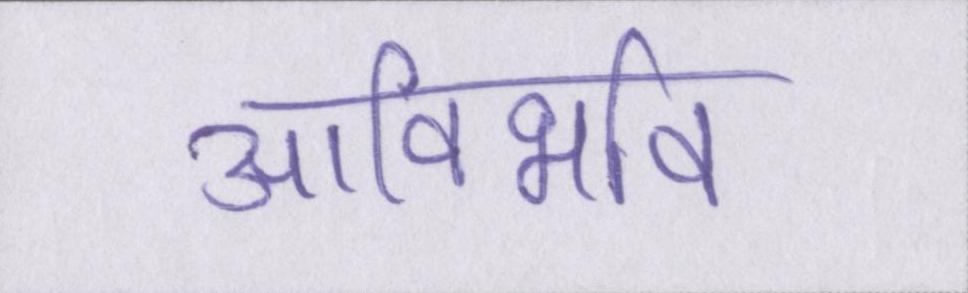 आविभवि